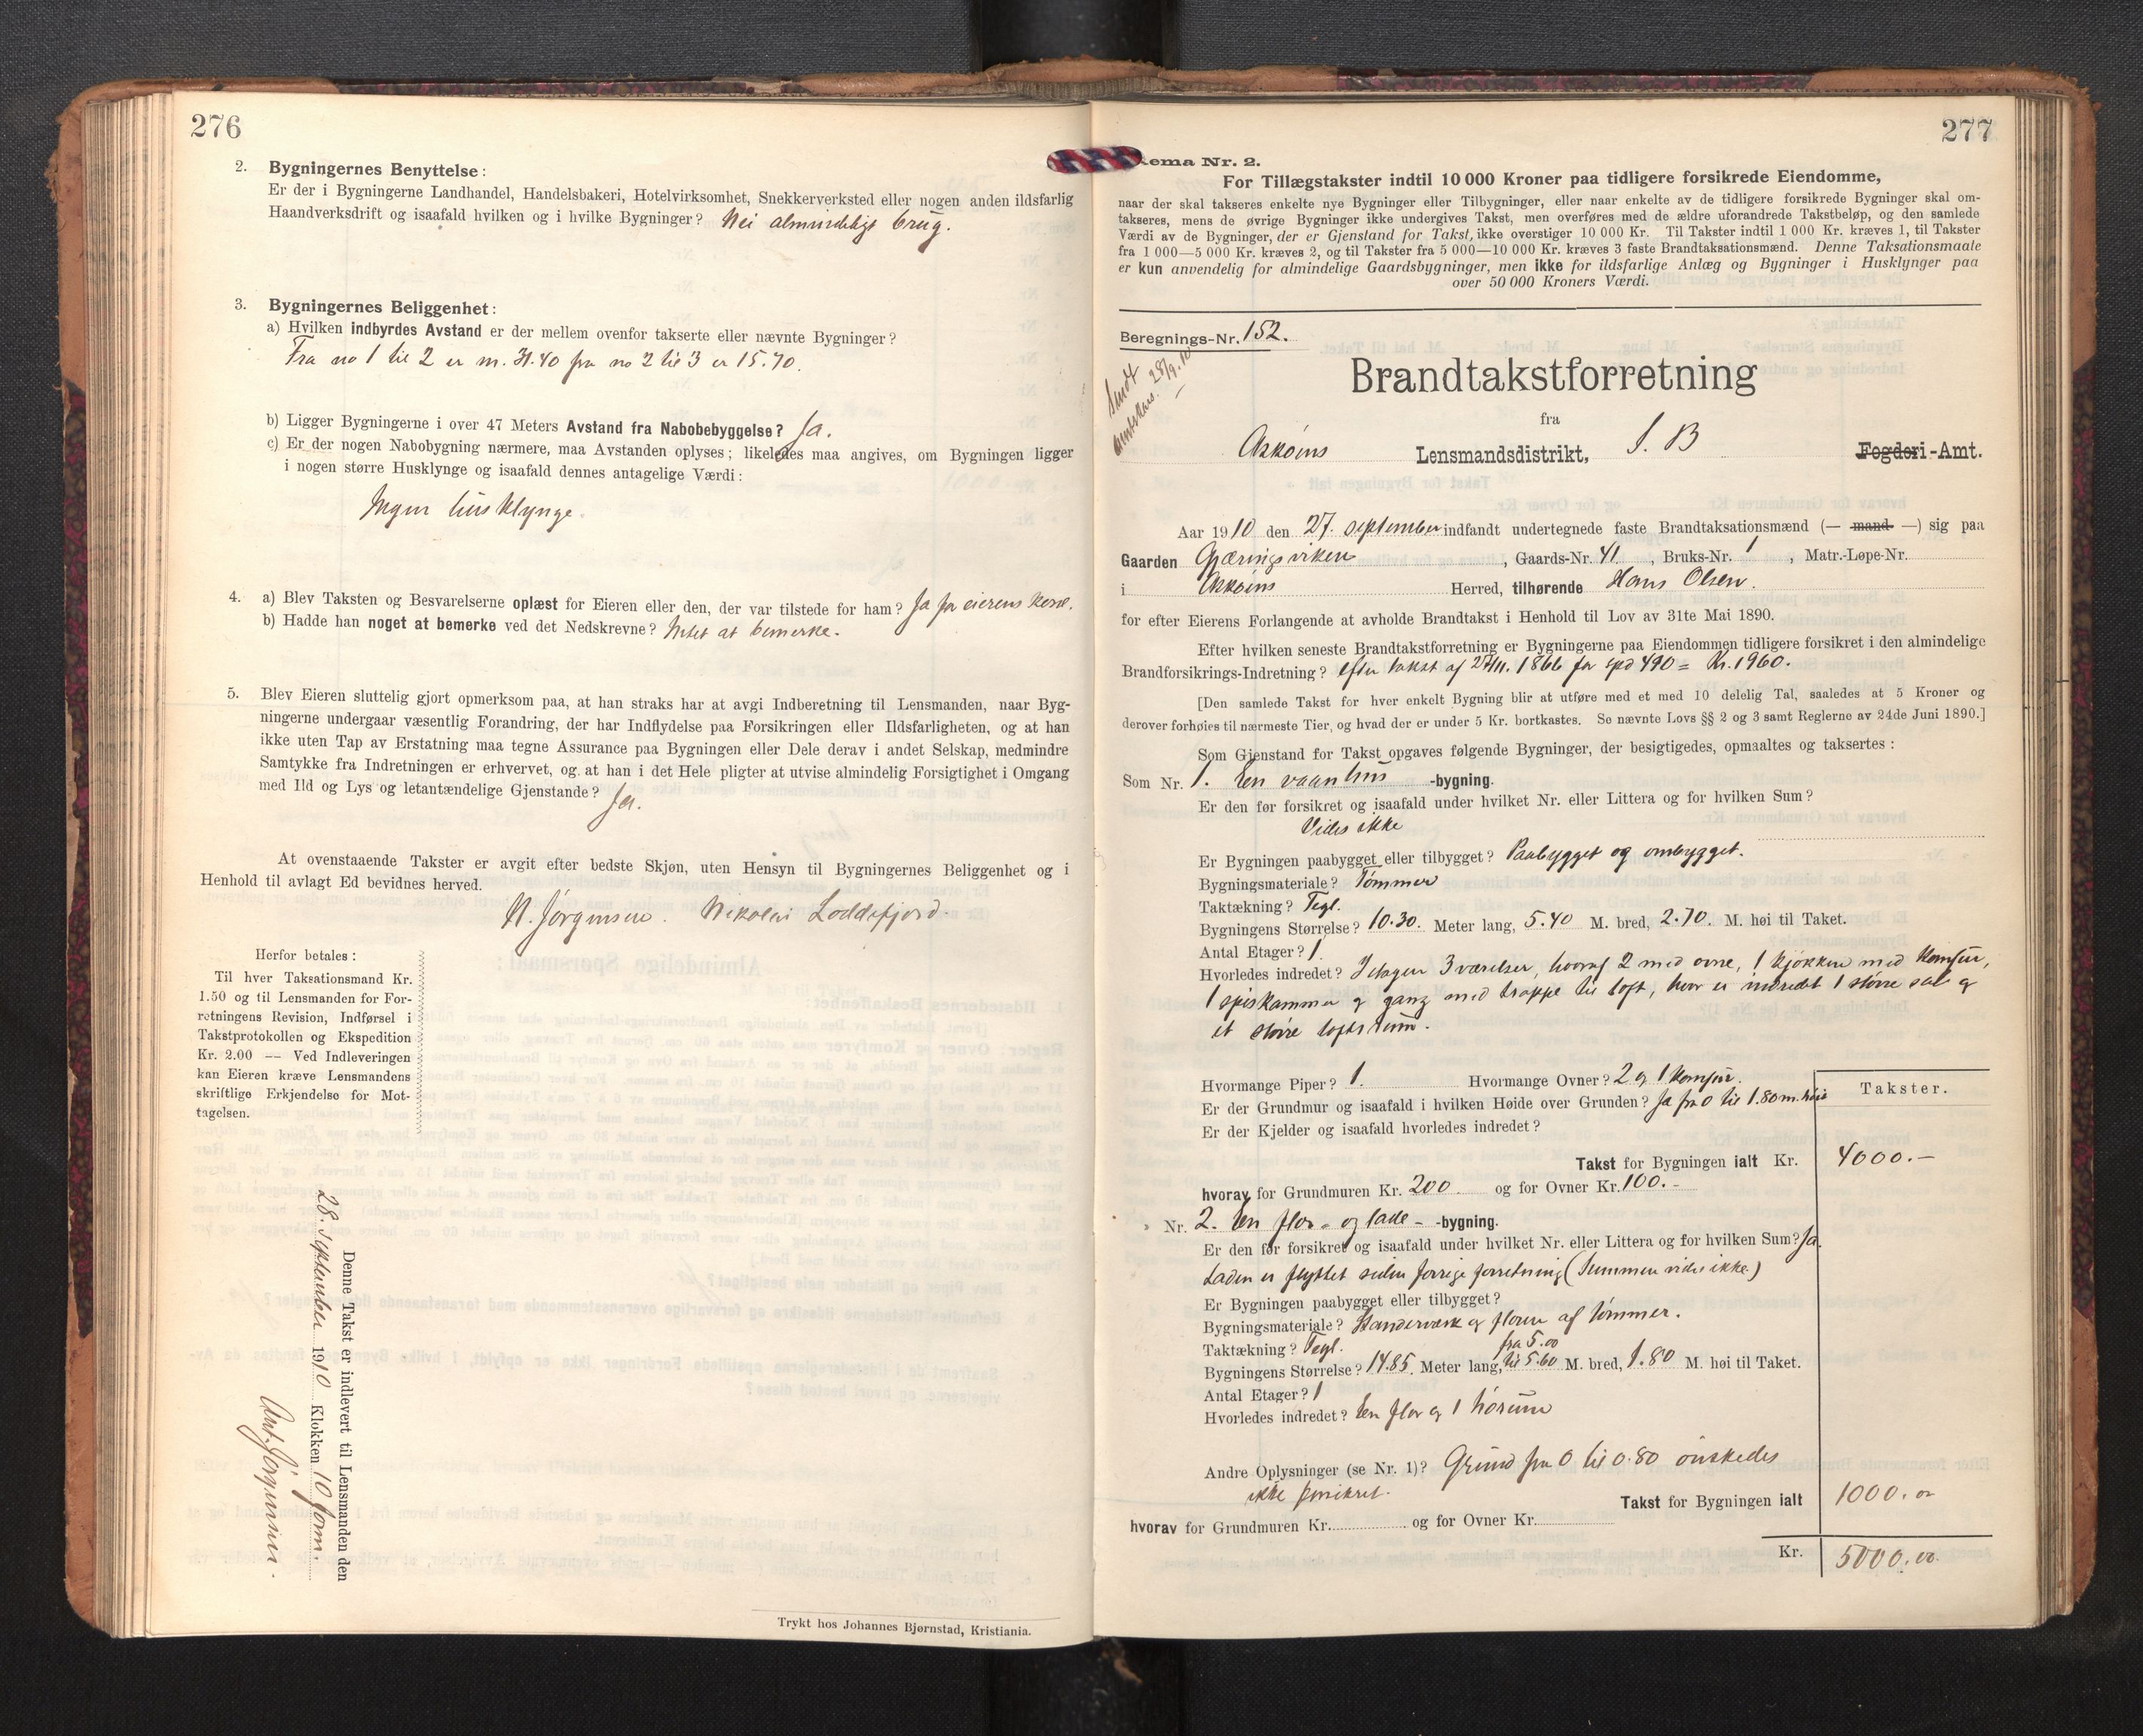 276
2. Bygningernes Benyttelse:
Er der i Bygningerne Landhandel, Handelsbakeri, Hotelvirksomhet, Snekkerverksted eller nogen anden ildsfarlig
Haandverksdrift og isaafald hvilken og i hvilke Bygninger? Nei almindeligt brug.
3. Bygningernes Beliggenhet:
a) Hvilken indbyrdes Avstand er der mellem ovenfor takserte eller nævnte Bygninger?
Fra no 1 til 2 er m. 31.40 fra no 2 til 3 er 15.70.
b) Ligger Bygningerne i over 47 Meters Avstand fra Nabobebyggelse? Ja.
c) Er der nogen Nabobygning nærmere, maa Avstanden oplyses; likeledes maa angives, om Bygningen ligger
i nogen større Husklynge og isaafald dennes antagelige Værdi:
Ingen husklynge.
4. a) Blev Taksten og Besvarelserne oplæst for Eieren eller den, der var tilstede for ham? Ja for eierens kone.
b) Hadde han noget at bemerke ved det Nedskrevne? Intet at bemerke.
5. Blev Eieren sluttelig gjort opmerksom paa, at han straks har at avgi Indberetning til Lensmanden, naar Byg-
ningerne undergaar væsentlig Forandring, der har Indflydelse paa Forsikringen eller Ildsfarligheten, og at han
ikke uten Tap av Erstatning maa tegne Assurance paa Bygningen eller Dele derav i andet Selskap, medmindre
Samtykke fra Indretningen er erhvervet, og at han i det Hele pligter at utvise almindelig Forsigtighet i Omgang
med Ild og Lys og letantændelige Gjenstande? Ja.
At ovenstaaende Takster er avgit efter bedste Skjøn, uten Hensyn til Bygningernes Beliggenhet og i
Henhold til avlagt Ed bevidnes herved.
N. Jørgensen. Nikolai Loddefjord.
Herfor betales:
Til hver Taksationsmand Kr.
1.50 og til Lensmanden for For-
retningens Revision, Indførsel i
Takstprotokollen og Ekspedition
Kr. 2.00 — Ved Indleveringen
kan Eieren kræve Lensmandens
skriftlige Erkjendelse for Mot-
tagelsen.
Denne Takst er indlevert til Lensmanden den
28 september 1910 Klokken 10 form.
Ant. Jørgensen.
Trykt hos Johannes Bjørnstad, Kristiania.
277
ema Nr. 2.
For Tillægstakster indtil 10 000 Kroner paa tidligere forsikrede Eiendomme,
naar der skal takseres enkelte nye Bygninger eller Tilbygninger, eller naar enkelte av de tidligere forsikrede Bygninger skal om-
takseres, mens de øvrige Bygninger ikke undergives Takst, men overføres med de ældre uforandrede Takstbeløp, og den samlede
Værdi av de Bygninger, der er Gjenstand for Takst, ikke overstiger 10 000 Kr. Til Takster indtil 1 000 Kr. kræves 1, til Takster
fra 1 000—5 000 Kr. kræves 2, og til Takster fra 5 000—10 000 Kr. kræves 3 faste Brandtaksationsmænd. Denne Taksationsmaate
er kun anvendelig for almindelige Gaardsbygninger, men ikke for ildsfarlige Anlæg og Bygninger i Husklynger paa
over 50 000 Kroners Værdi.
Beregnings-Nr. 152.
Sendt
28/9.10
Brandtakstforretning
fra
Askøens Lensmandsdistrikt, S. B Fogderi-Amt.
Aar 1910 den 27. september indfandt undertegnede faste Brandtaksationsmænd (— mand —) sig paa
Gaarden Gjæringsviken, Gaards-Nr. 41, Bruks-Nr. 1, Matr.-Løpe-Nr.
i Askøens Herred, tilhørende Hans Olsen.
for efter Eierens Forlangende at avholde Brandtakst i Henhold til Lov av 31te Mai 1890.
Efter hvilken seneste Brandtakstforretning er Bygningerne paa Eiendommen tidligere forsikret i den almindelige
Brandforsikrings-Indretning? efter takst af 27/11. 1866 for spd 490 = Kr. 1960.
[Den samlede Takst for hver enkelt Bygning blir at utføre med et med 10 delelig Tal, saaledes at 5 Kroner og
derover forhøies til nærmeste Tier, og hvad der er under 5 Kr. bortkastes. Se nævnte Lovs §§ 2 og 3 samt Reglerne av 24de Juni 1890.]
Som Gjenstand for Takst opgaves følgende Bygninger, der besigtigedes, opmaaltes og taksertes:
Som Nr. 1. En vaanhus -bygning.
Er den før forsikret og isaafald under hvilket Nr. eller Littera og for hvilken Sum?
Vides ikke
Er Bygningen paabygget eller tilbygget? Paabygget og ombygget.
Bygningsmateriale? Tømmer
Taktækning? Tegl.
Bygningens Størrelse? 10.30. Meter lang, 5.40 M. bred, 2.70. M. høi til Taket.
Antal Etager? 1.
Hvorledes indredet? I etagen 3 værelser, hvoraf 2 med ovne, 1 kjøkken med komfur,
1 spiskammer og gang med trappe til loft, hvor er indredet 1 større sal og
et større loftsrum.
Hvormange Piper? 1. Hvormange Ovner? 2 og 1 komfur.
Er der Grundmur og isaafald i hvilken Høide over Grunden? Ja fra 0 til 1.80 m. høie
Er der Kjelder og isaafald hvorledes indredet?
Takster.
Takst for Bygningen ialt Kr. 4000.—
hvorav for Grundmuren Kr. 200 og for Ovner Kr. 100.-
Nr. 2. En flor- og lade- -bygning.
Er den før forsikret og isaafald under hvilket Nr. eller Littera og for hvilken Sum? Ja.
Laden er flyttet siden forrige forretning (Summen vides ikke)
Er Bygningen paabygget eller tilbygget?
Bygningsmateriale? Standerværk og floren af tømmer.
Taktækning? Tegl.
Bygningens Størrelse? 14.85. Meter lang, fra 5.00 til 5.60 M. bred, 1.80 M. høi til Taket.
Antal Etager? 1
Hvorledes indredet? En flor og 1 hørum
Andre Oplysninger (se Nr. 1)? Grund fra 0 til 0.80 ønskedes
ikke forsikret.
Takst for Bygningen ialt 1000.00
hvorav for Grundmuren Kr. og for Ovner Kr.
Kr. 5000.00.